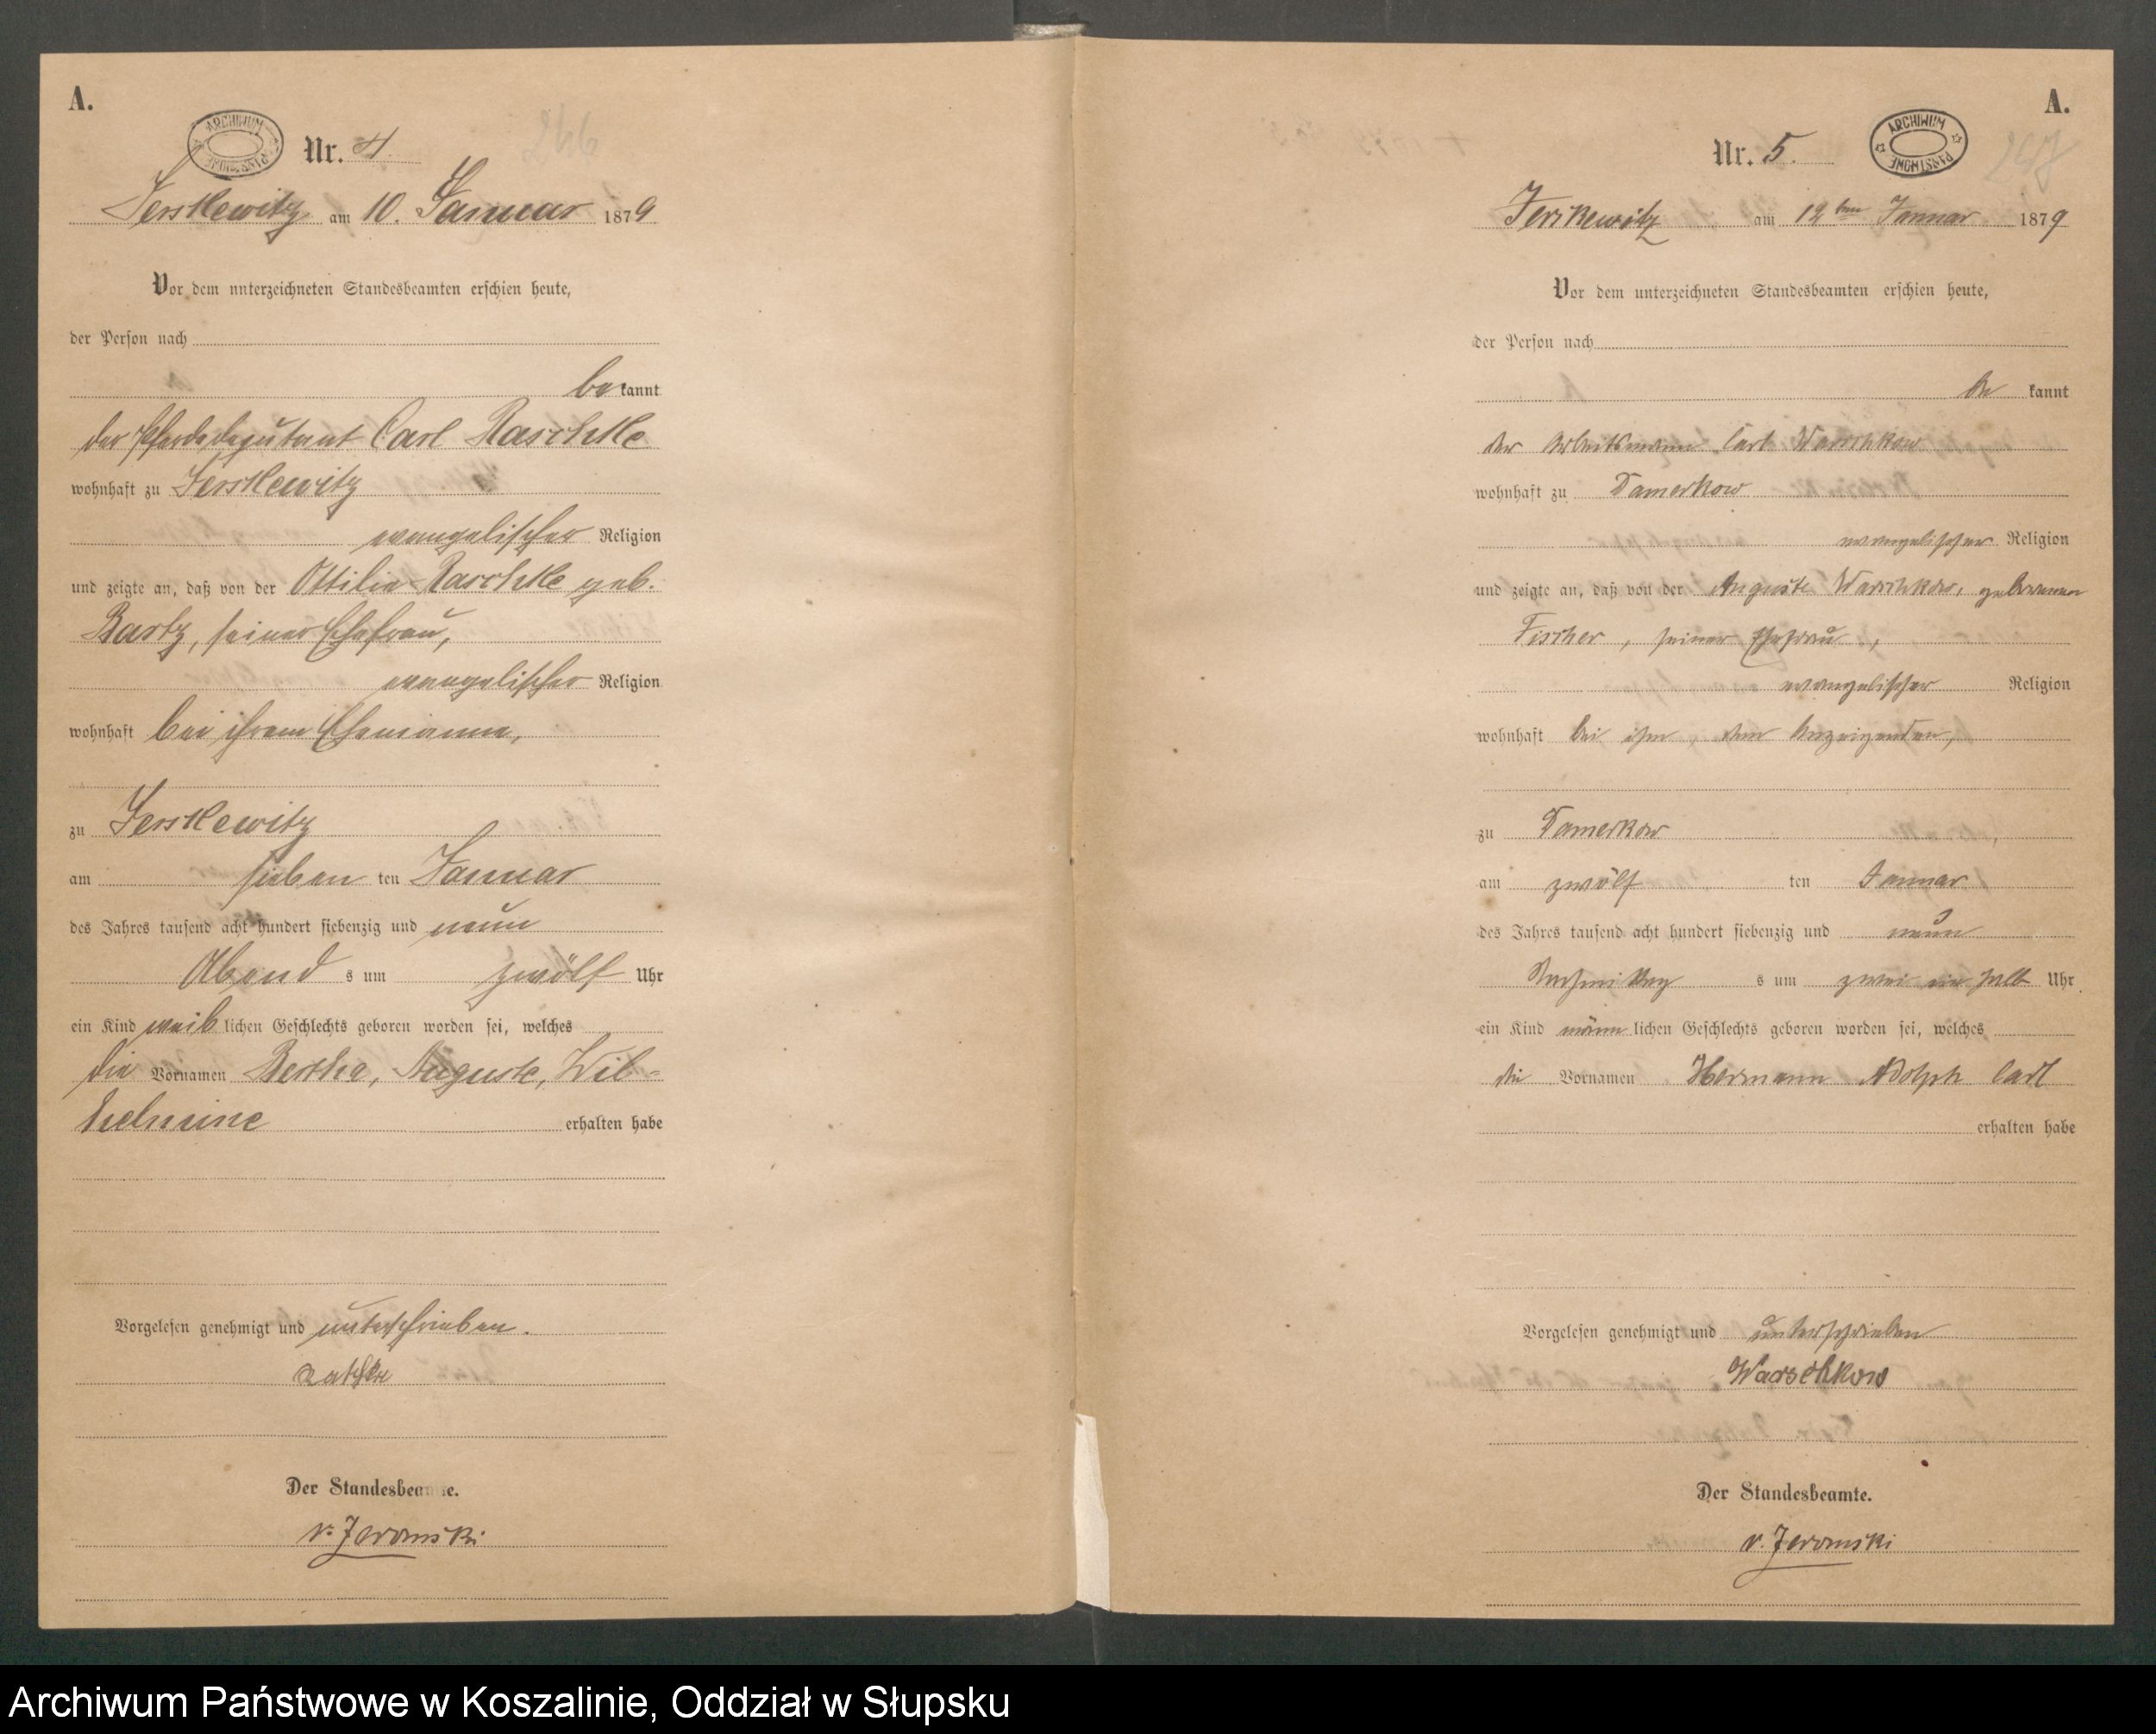 A.
ARCHIWUM PAŃSTWOWE
Nr. 4.
Jersskewitz am 10. Januar 1879
Vor dem unterzeichneten Standesbeamten erschien heute,
der Person nach
bekannt
der Pferdedeputant Carl Raschke
wohnhaft zu Jersskewitz
evangelischer Religion
und zeigte an, daß von der Ottilie Raschke geb.
Bartz, seiner Ehefrau,
evangelischer Religion
wohnhaft bei ihrem Ehemanne,
zu Jersskewitz
am sieben ten Januar
des Jahres tausend acht hundert siebenzig und neun
Abend s um zwölf Uhr
ein Kind weiblichen Geschlechts geboren worden sei, welches
die Vornamen Bertha, Auguste, Wil-
helmine erhalten habe
Vorgelesen genehmigt und unterschrieben.
Der Standesbeamte.
v. Jeromski
A.
Nr. 5.
ARCHIWUM PAŃSTWOWE
247
Jerskewitz am 12ten Januar 1879
Vor dem unterzeichneten Standesbeamten erschien heute,
der Person nach
be kannt
der Arbeitsmann Carl Warschkow
wohnhaft zu Damerkow
evangelischer Religion
und zeigte an, daß von der Auguste Warschkow, geborenen
Fischer, seiner Ehefrau,
evangelischer Religion
wohnhaft bei ihm, dem Anzeigenden,
zu Damerkow
am zwölf ten Januar
des Jahres tausend acht hundert siebenzig und neun
Nachmittag s um zwei ein halb Uhr
ein Kind männlichen Geschlechts geboren worden sei, welches
die Vornamen Hermann Adolph Carl
erhalten habe
Vorgelesen genehmigt und unterschrieben
Warschkow
Der Standesbeamte.
v. Jeromski
Archiwum Państwowe w Koszalinie, Oddział w Słupsku